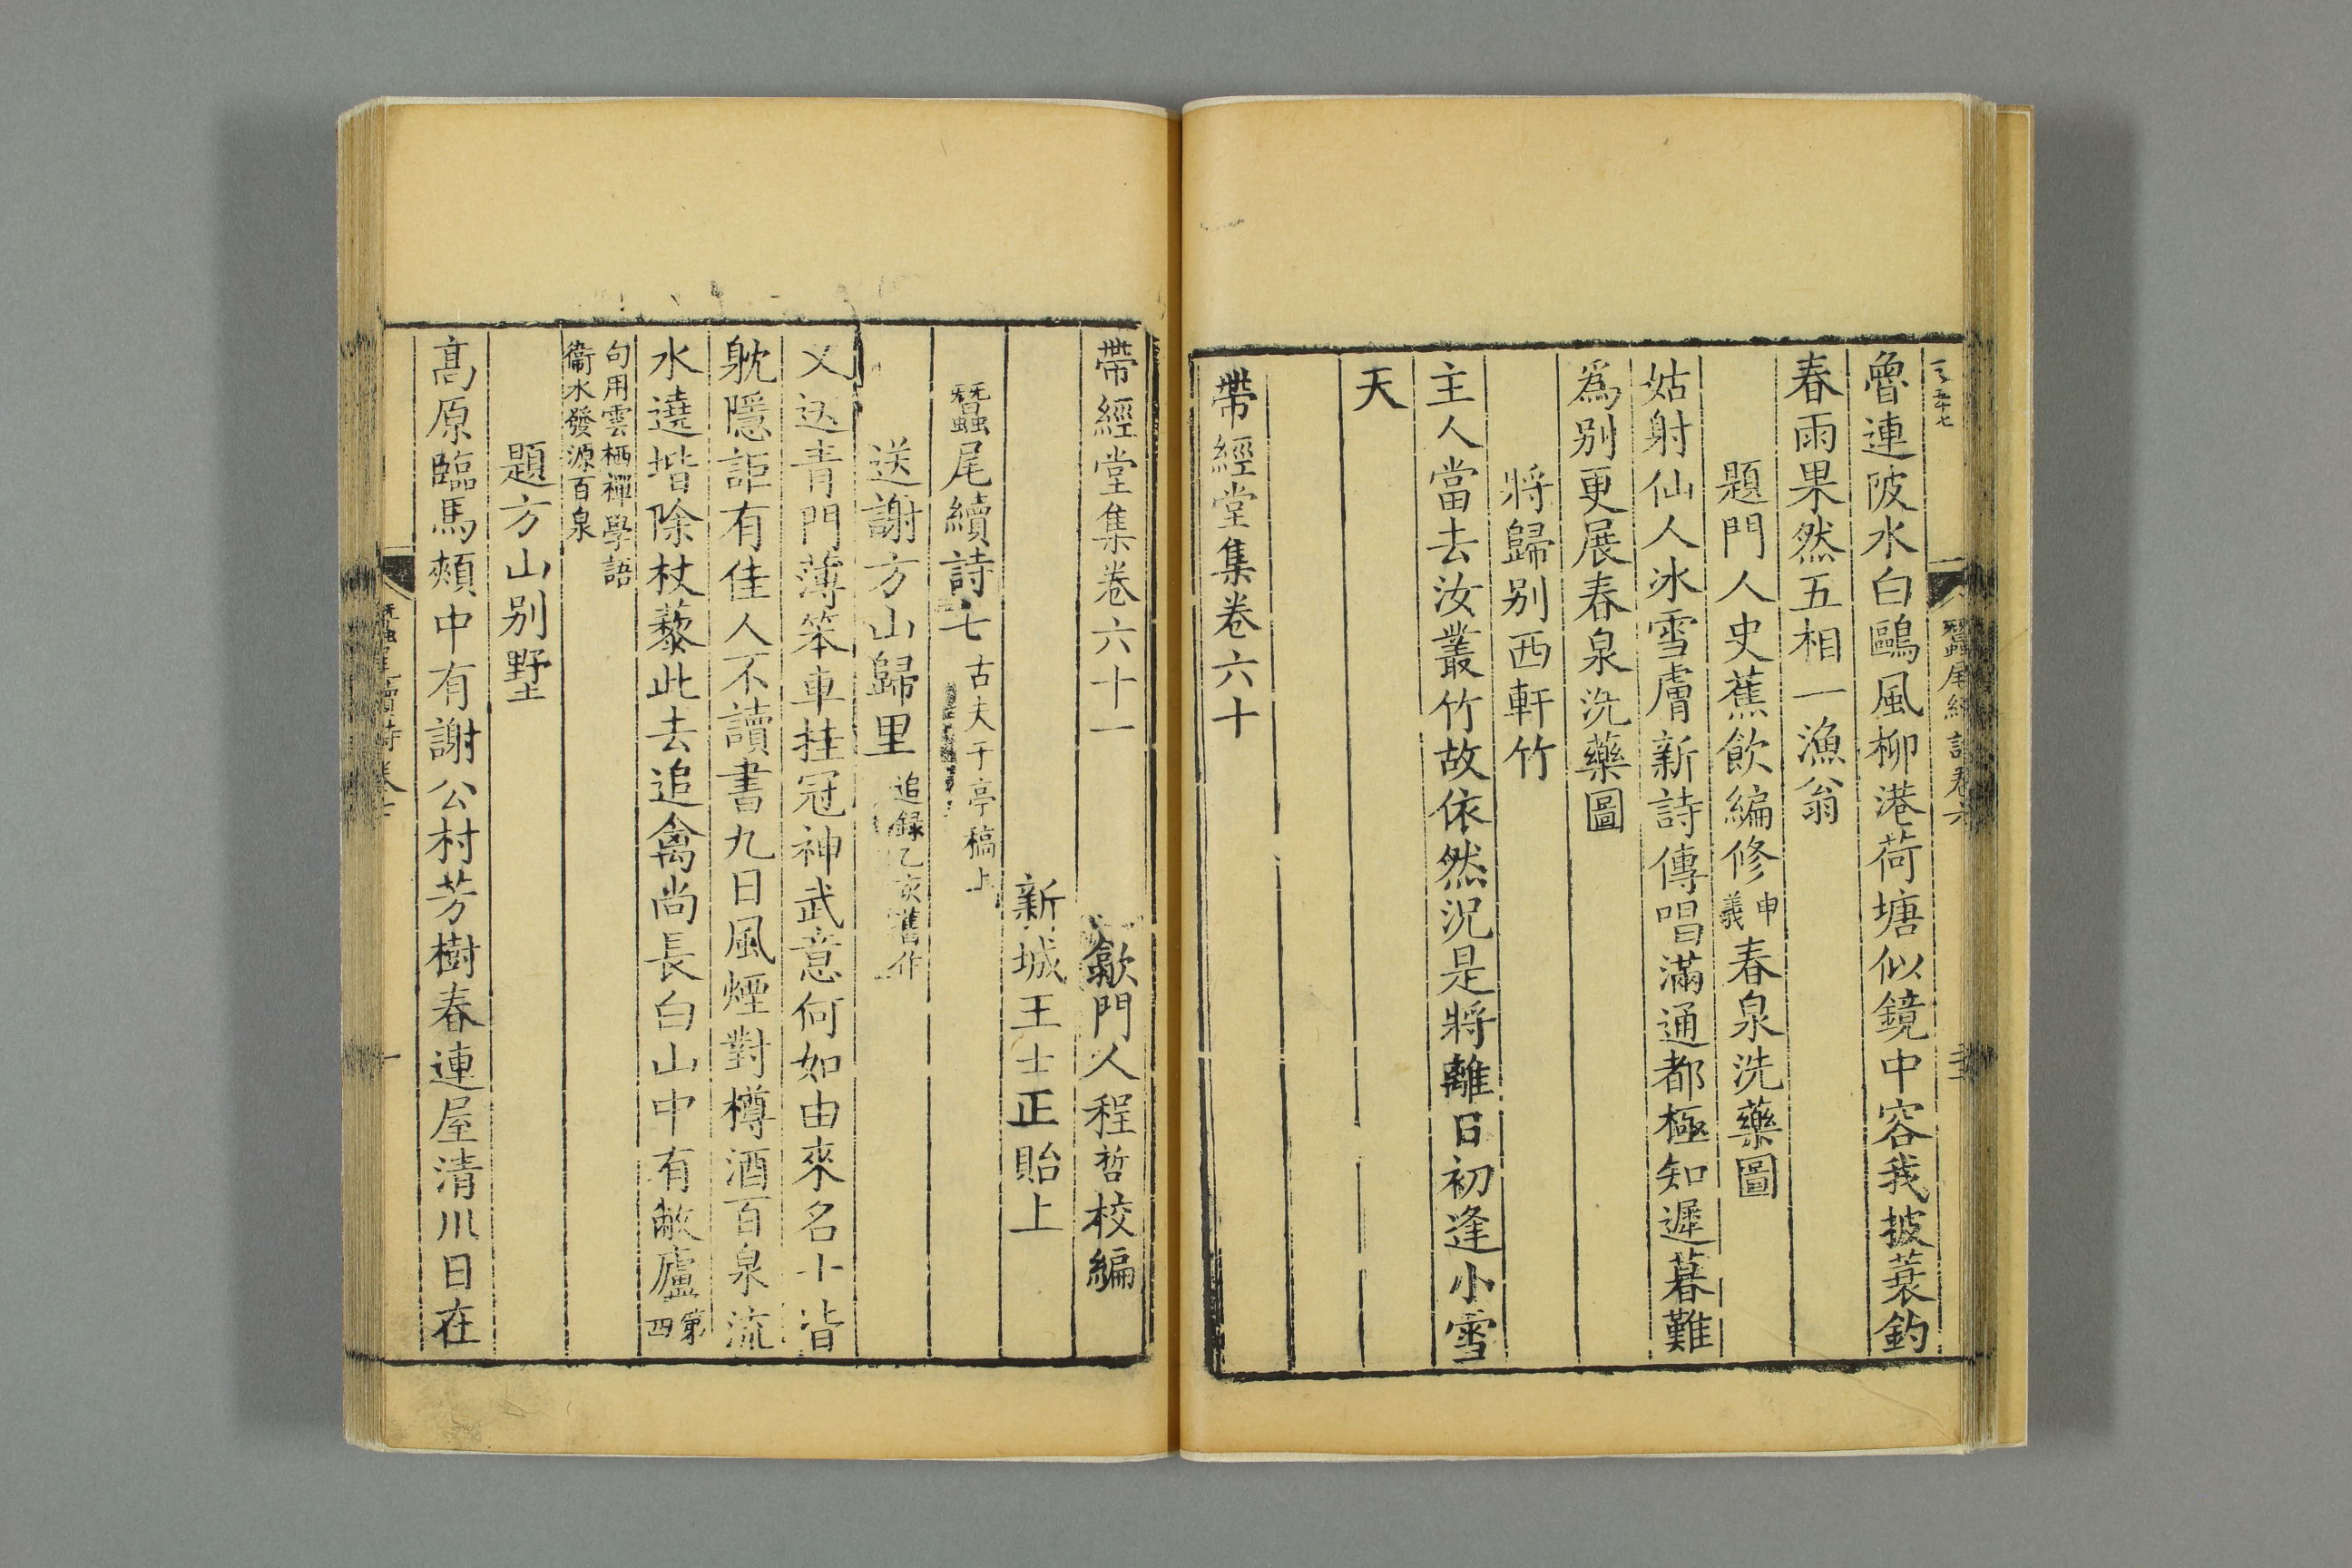 蠶尾續詩卷六
魯連陂水白鷗風柳港荷塘似鏡中容我披蓑釣
春雨果然五相一漁翁
題門人史蕉飲編修申義春泉洗藥圖
姑射仙人冰雪膚新詩傳唱滿通都極知遲暮難
為别更展春泉洗藥圖
將歸别西軒竹
主人當去汝叢竹故依然況是將離日初逢小雪
天
帶經堂集卷六十
帶經堂集卷六十一 歙門人程哲校編
新城王士正貽上
蠶尾續詩七 古夫于亭稿上
送謝方山歸里 追録乙亥舊作
又送青門薄笨車挂冠神武意何如由來名士皆
躭隱詎有佳人不讀書九日風煙對樽酒百泉流
水遶堦除杖藜此去追禽尚長白山中有敝廬第四
句用雲栖禪學語
衞水發源百泉
題方山别墅
髙原臨馬頰中有謝公村芳樹春連屋清川日在
蠶尾續詩卷七
一